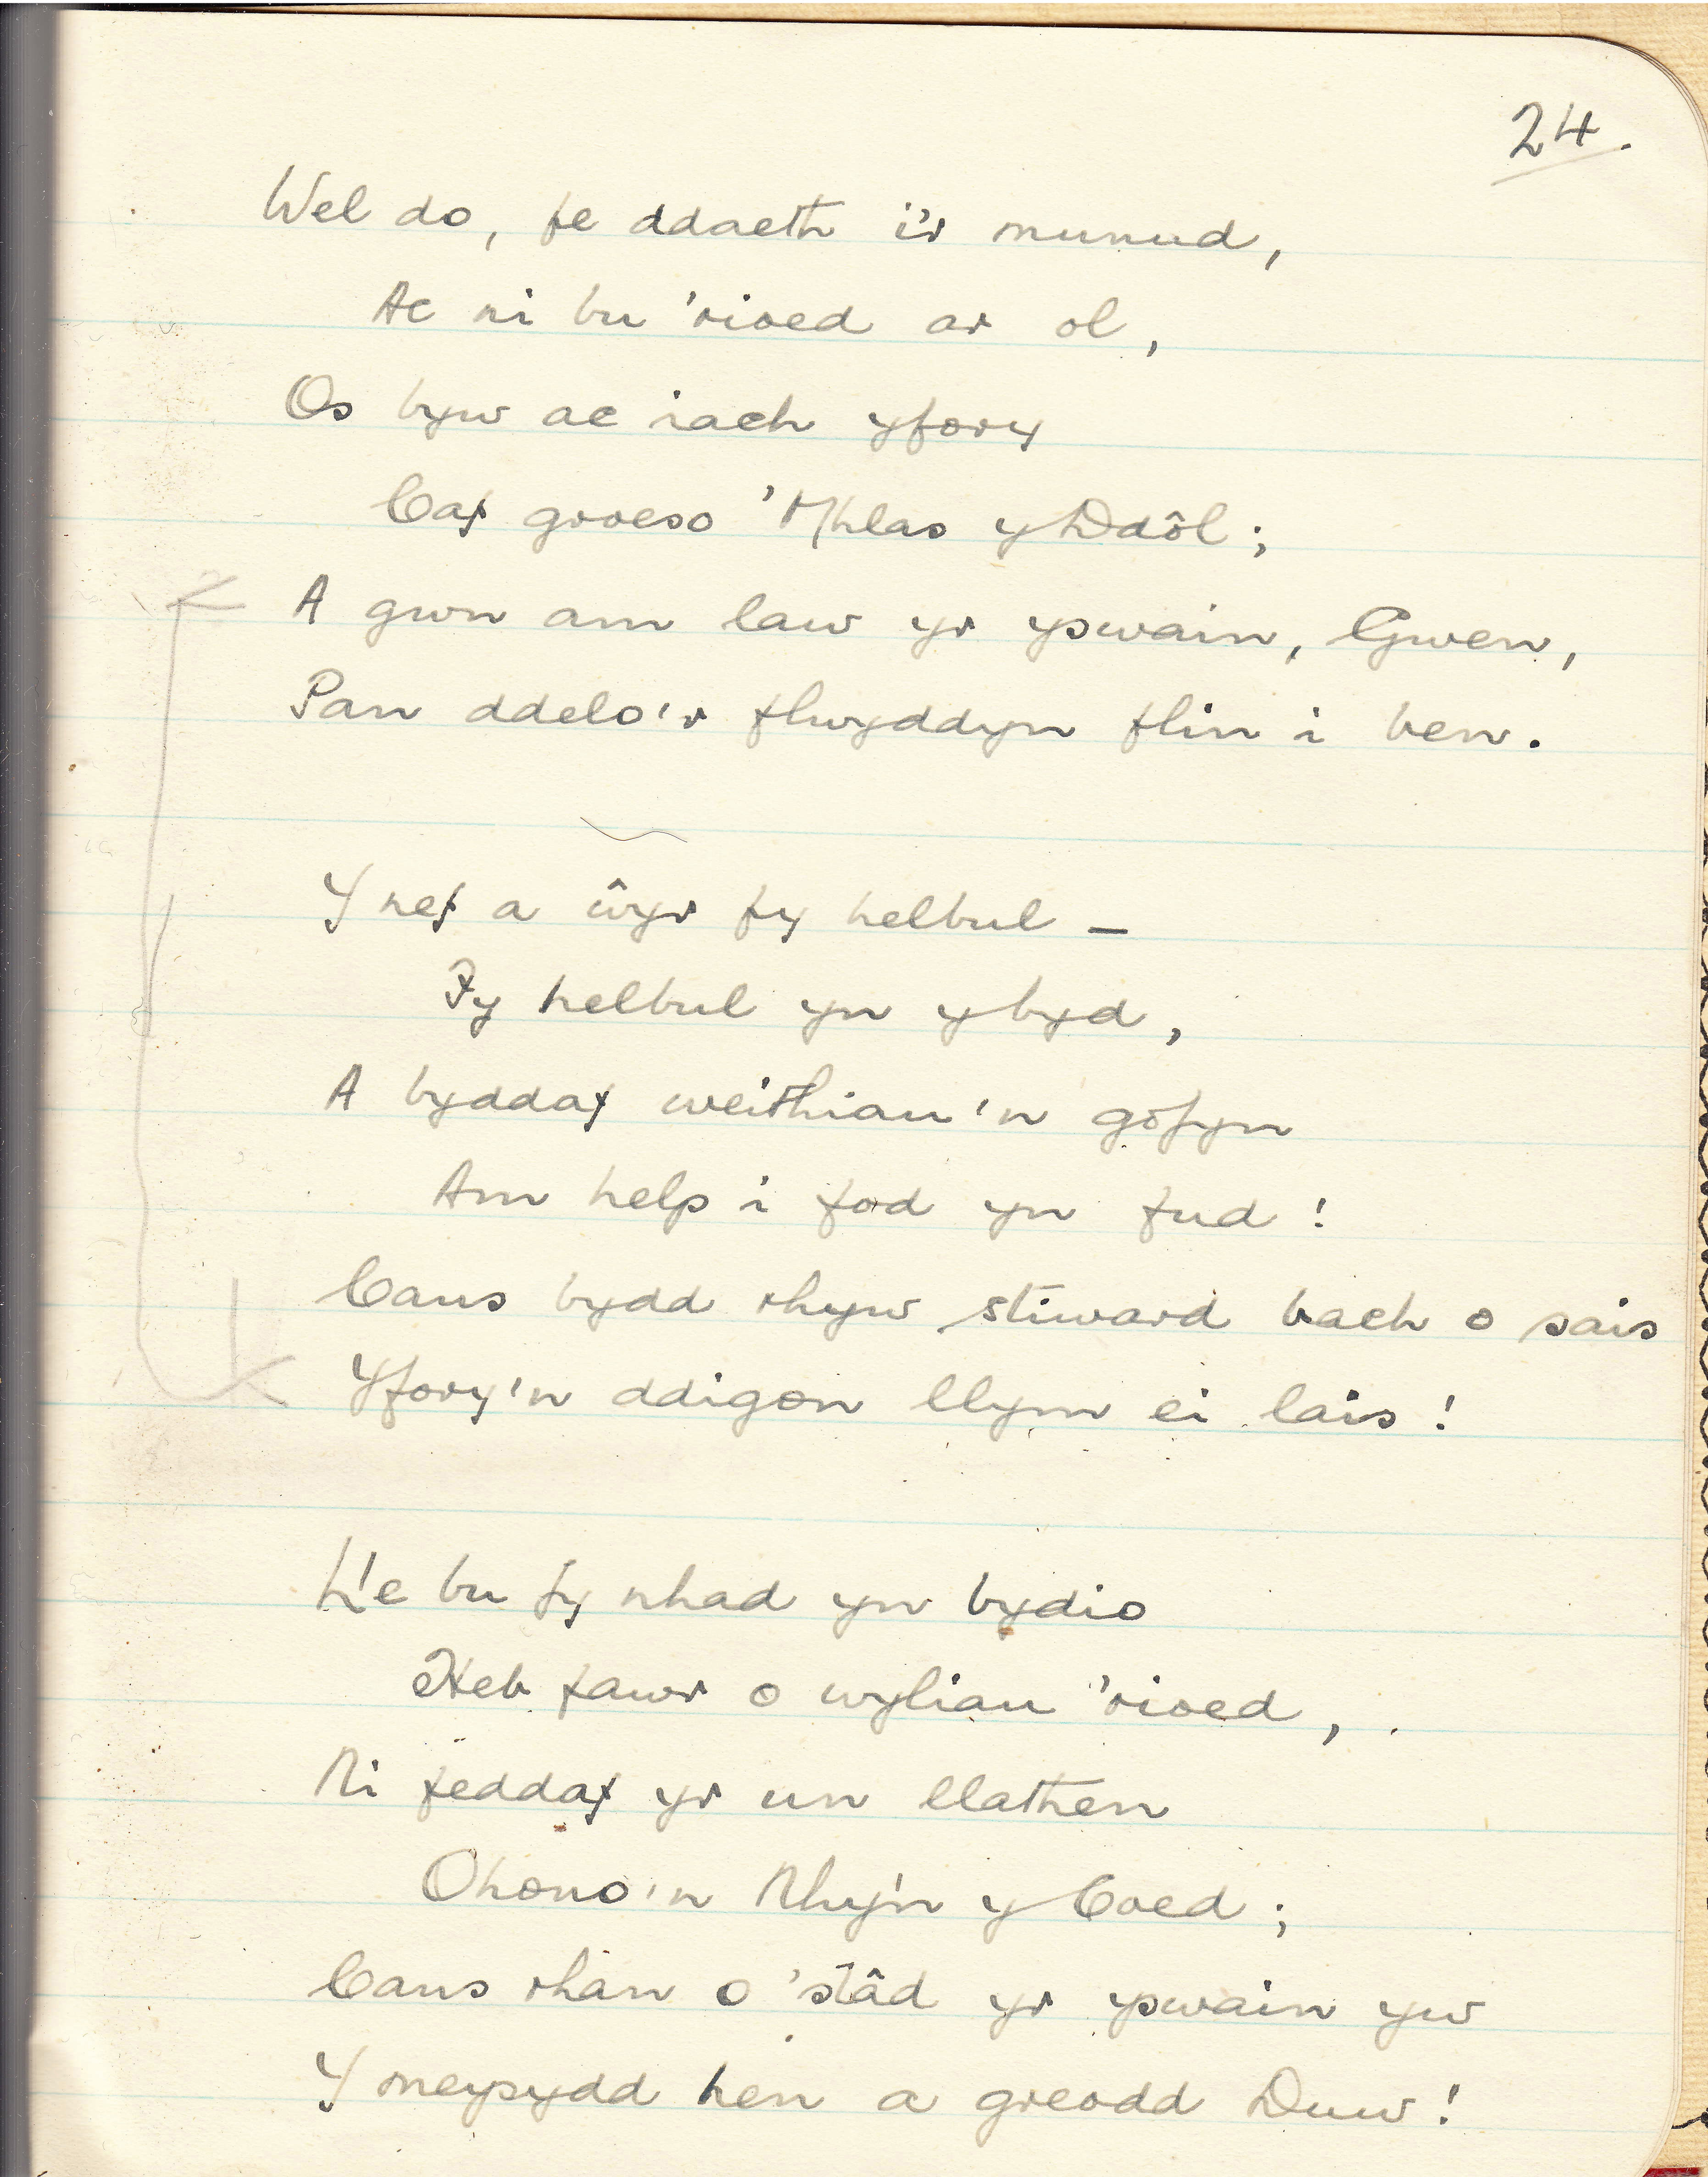 24.
Wel do, fe ddaeth i'r munud,
Ac ni bu 'rioed ar ol,
Os byw ac iach yfory
Caf groeso 'Mhlas y Ddôl;
A gwn am law yr yswain, Gwen,
Pan ddelo'r flwyddyn flin i ben.
Y nef a ŵyr fy helbul –
Fy helbul yn y byd,
A byddaf weithiau'n gofyn
Am help i fod yn fud!
Caus bydd rhyw stiward bach o sais
Yfory'n ddigon llym ei lais!
Ll'e bu fy nhad yn bydio
Heb fawr o wyliau 'rioed,
Ni feddaf yr un llathen
Ohono'n Nhy'n y Coed;
Caus rhan o 'stâd yr yswain yw
Y meysydd hen a greodd Duw!